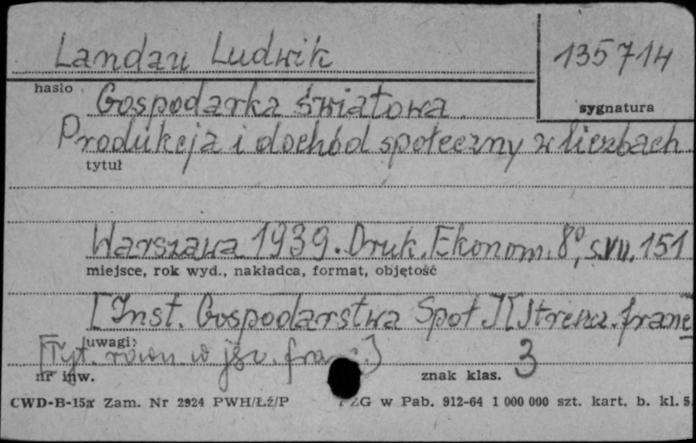 Landau Ludwik
135714
hasło
sygnatura
Gospodarka światowa.
Produkcja i dochód społeczny w liczbach.
tytuł
Warszawa 1939. Druk. Ekonom. 8°, s. VII, 151
miejsce, rok wyd., nakładca, format, objętość
[Inst. Gospodarstwa Społ.] [Streszcz. franc
uwagi:
[Tyt. równ. w jęz. franc.]
3
nr inw.
znak klas.
CWD-B-15a Zam. Nr 2924 PWH/Łź/P
PZG w Pab. 912-64 1 000 000 szt. kart. b. kl. 5